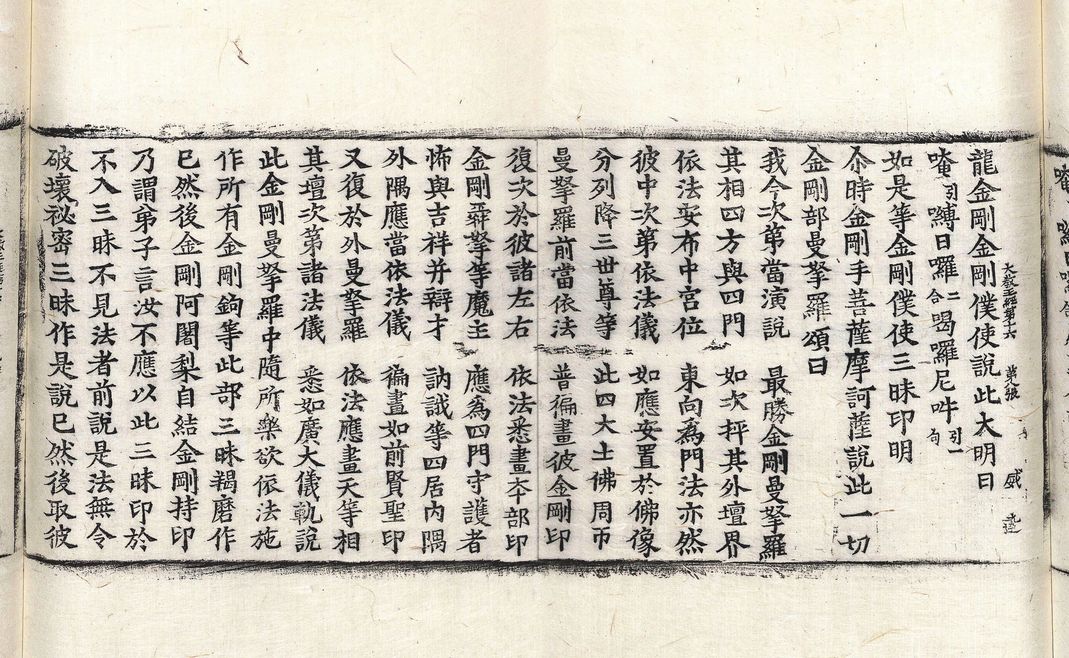 龍金剛金剛僕使說此大明曰
唵引嚩日囉二合曷囉尼吽引一句
如是等金剛僕使三昧印明
尒時金剛手菩薩摩訶薩說此一切
金剛部曼拏羅頌曰
我今次第當演說 最勝金剛曼拏羅
其相四方與四門 如次抨其外壇界
依法安布中宮位 東向為門法亦然
彼中次第依法儀 如應安置於佛像
分列降三世尊等 此四大士佛周帀
曼拏羅前當依法 普徧畫彼金剛印
復次於彼諸左右 依法悉畫本部印
金剛

拏等魔主 應為四門守護者
怖與吉祥并辯才 訥誐等四居內隅
外隅應當依法儀 徧畫如前賢聖印
又復於外曼拏羅 依法應畫天等相
其壇次第諸法儀 悉如廣大儀軌說
此金剛曼拏羅中隨所樂欲依法施
作所有金剛鉤等此部三昧羯磨作
已然後金剛阿闍梨自結金剛持印
乃謂弟子言汝不應以此三昧印於
不入三昧不見法者前說是法無令
破壞祕密三昧作是說已然後取彼
大教王經第十六 威